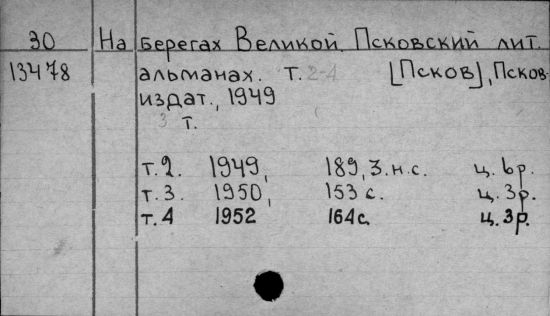 30 На берегах Великой. Псковский лит.
13478 альманах. т. 2-4 [Псков], Псков.
издат., 1949
3 т.
т.2. 1949, 189, 3.н.с. ц. 6р.
т.3. 1950, 153 с. ц. 3р.
т.4 1952 164с. ц. 3р.